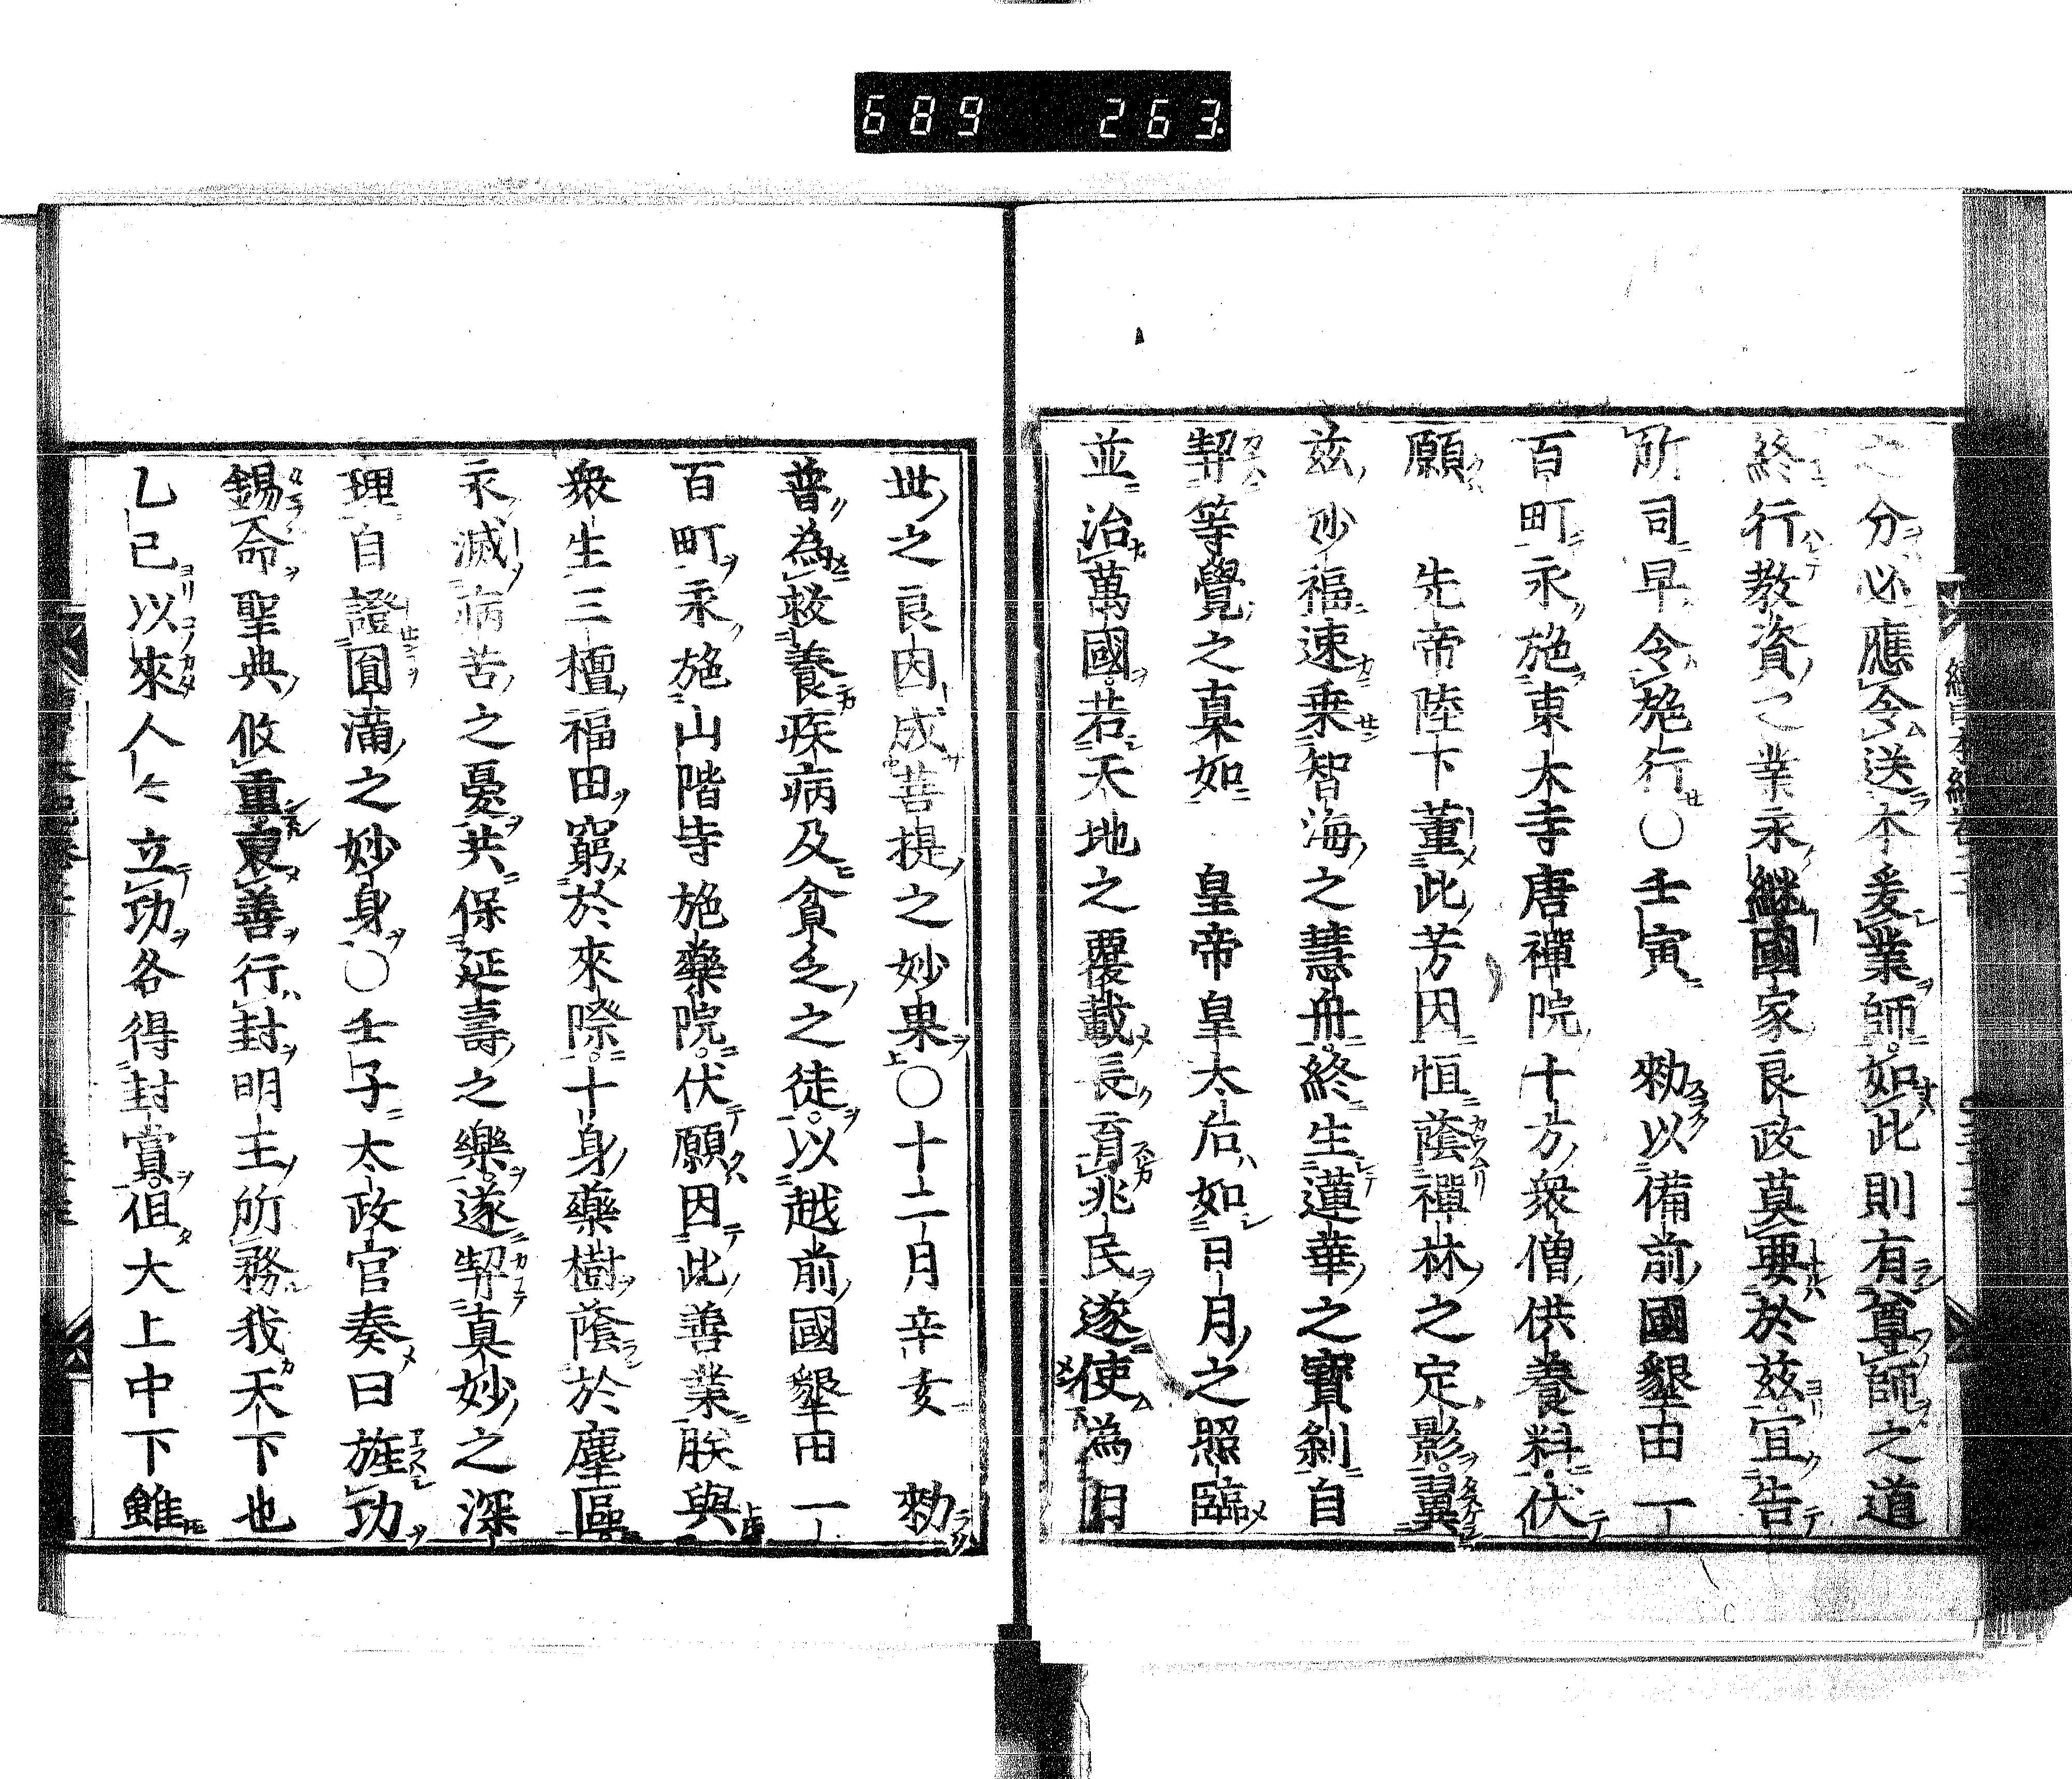 689 263
之分必應令送本爰業師如此則有尊師之道
終行教資之業永継國家良政莫要於茲宜告
所司早令施行〇壬寅 勅以備前國墾田一
百町永施東大寺唐禪院十方衆僧供養料伏
願 先帝陸下董此芳因恒蔭禪林之定影翼
茲妙福速乗智海之慧舟終生蓮華之寶刹自
契等覺之真如 皇帝皇太后如日月之照臨
並治萬國若天地之覆載長育兆民遂使為因
世之良因成菩提之妙果〇十二月辛亥 勅
普為救養疾病及貧乏之徒以越前國墾田一
百町永施山階寺施藥院伏願因此善業朕與
衆生三檀福田窮於來際十身藥樹蔭於塵區
永滅病苦之憂共保延壽之樂遂契真妙之深
理自證圓滿之妙身〇壬子太政官奏曰旌功
錫命聖典攸重褒善行封明王所務我天下也
乙巳以來人々立功各得封賞但大上中下雖